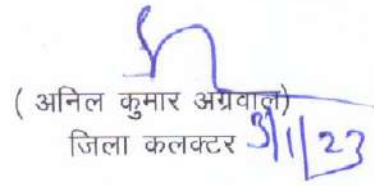 ( अनिल कुमार अग्रवाल)
जिला कलक्टर 3/1/23